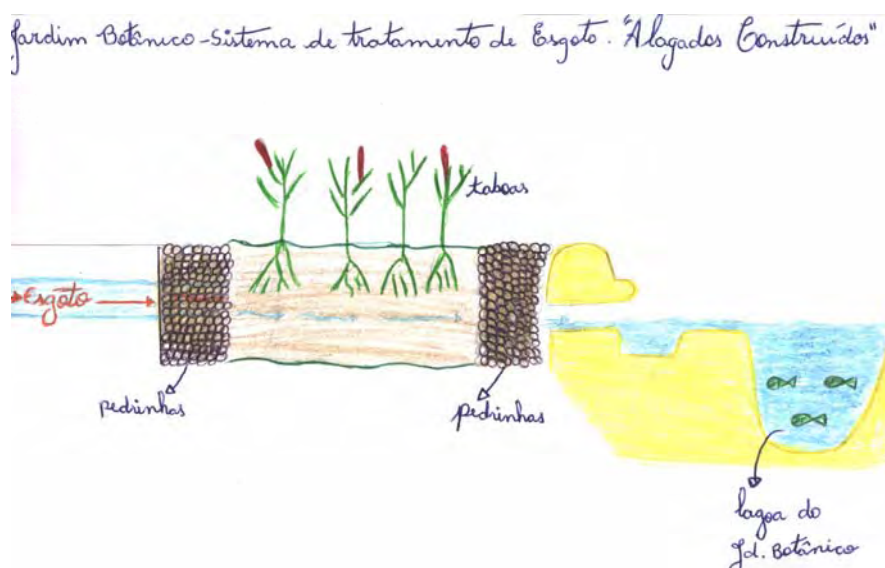 Jardim Botânico-Sistema de tratamento de Esgoto. "Alagados Construídos"
taboas
Esgoto
pedrinhas
pedrinhas
lagoa do
Jd. Botânico